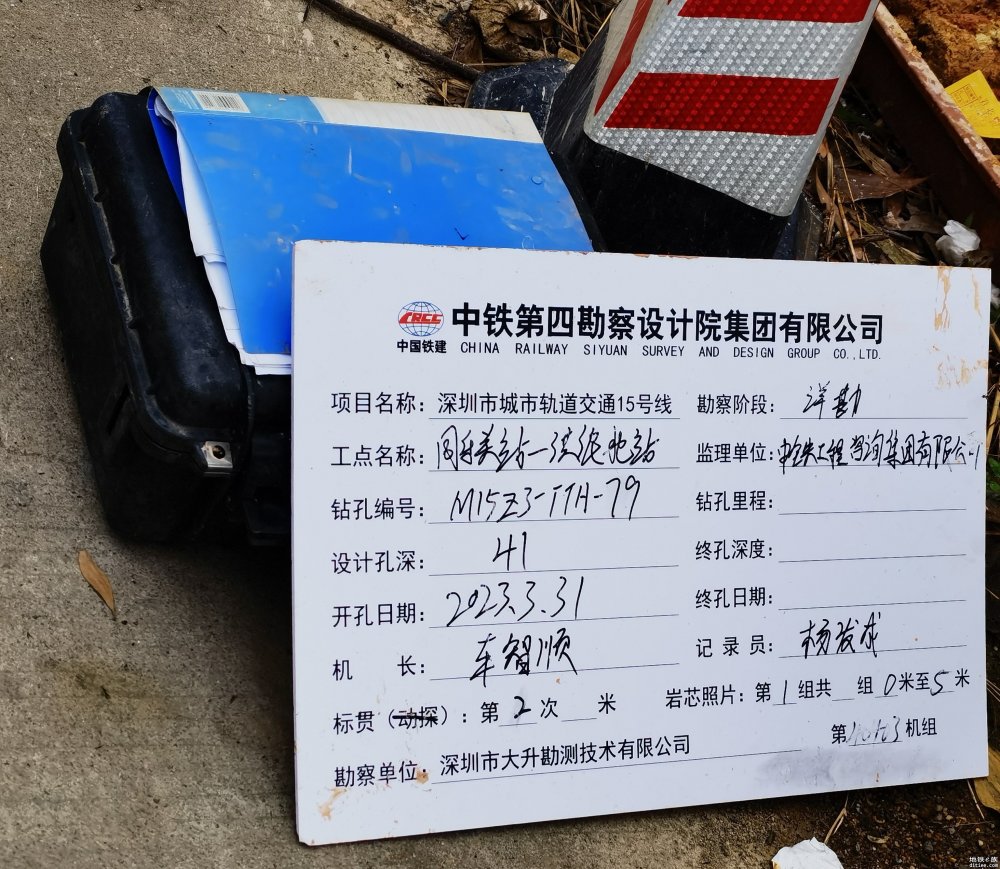 CRCC
中国铁建
中铁第四勘察设计院集团有限公司
CHINA RAILWAY SIYUAN SURVEY AND DESIGN GROUP CO.,LTD.
项目名称: 深圳市城市轨道交通15号线 勘察阶段: 详勘
工点名称: 监理单位: 中铁工程咨询集团有限公司
钻孔编号: M15Z3-TTH-79 钻孔里程:
设计孔深: 41 终孔深度:
开孔日期: 2023.3.31 终孔日期:
机 长: 车智顺 记录员: 杨发成
标贯(动探): 第2次 米 岩芯照片: 第1组共 组 0米至5米
勘察单位: 深圳市大升勘测技术有限公司 第 机组
地铁e族
ditiee.com